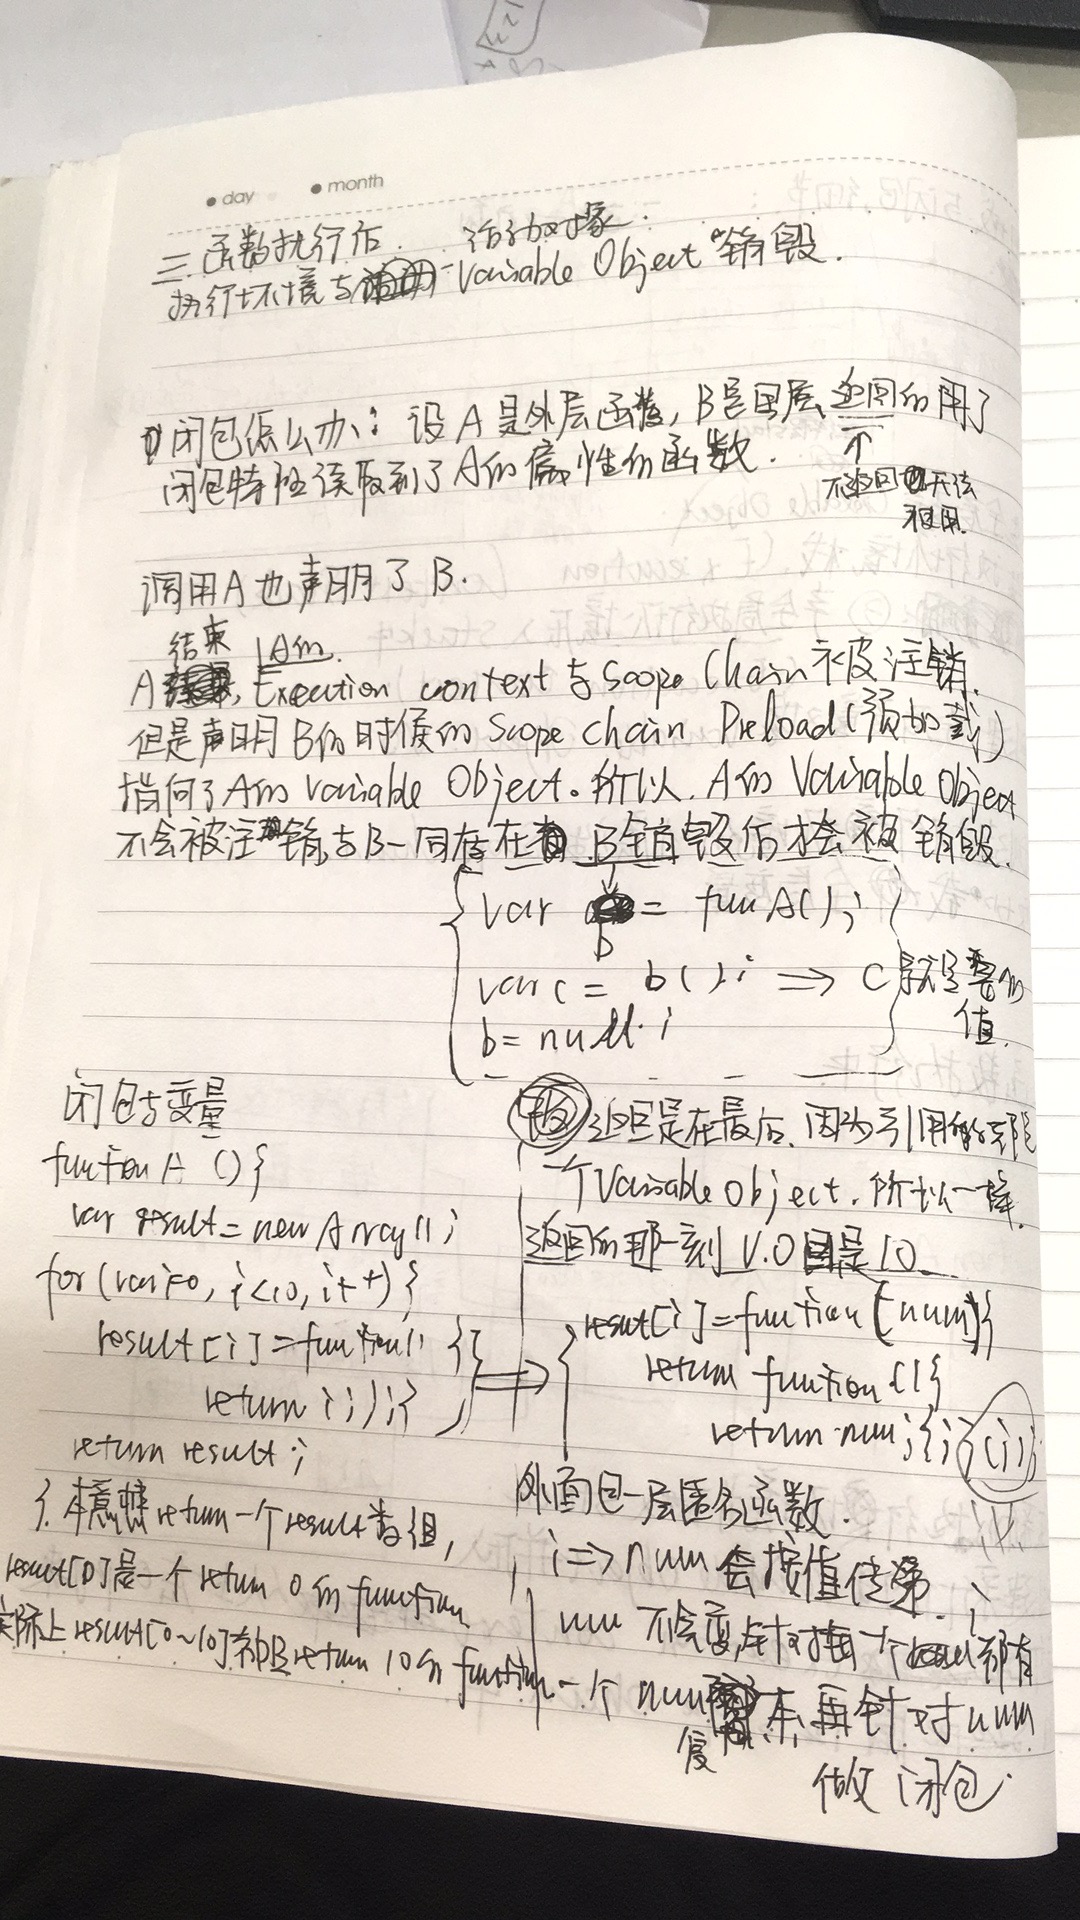 day
month
三.函数执行后. 活动对象.
执行环境与 Variable Object 销毁.
闭包怎么办: 设A是外层函数, B是里层返回的用了
闭包特性读取到了A的属性的函数.
不返回无法
使用.
调用A也声明了B.
结束 A的
A, Execution context 与 Scope Chain 被注销.
但是声明B的时候的 Scope Chain Preload(预加载)
指向了A的 Variable Object。所以, A的 Variable Object
不会被注销,与B一同存在 B销毁后才会被销毁.
var = funA();
b
var c = b(); => C就是要的
值.
b = null;
闭包与变量
function A () {
var result = new Array();
for (var i=0, i<10, i++) {
result[i] = function() {
return i; };}
return result;
}. 本意想 return 一个 result 数组,
result[0]是一个 return 0 的 function
实际上 result[0~10]都是 return 10 的 function
返回是在最后, 因为引用的都是
一个 Variable object. 所以一样.
返回的那一刻 V.O 是 10
result[i] = function (num){
return function(){
return num; }; }(i);
外面包一层匿名函数.
i => num 会按值传递.
num 不会变,针对每一个 i 都有
一个 num 副本,再针对 num
做闭包.